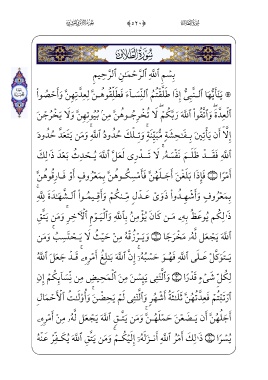 سُورَةُ الطَّلَاقِ
بِسْمِ ٱللَّهِ ٱلرَّحْمَٰنِ ٱلرَّحِيمِ
۞ يَٰٓأَيُّهَا ٱلنَّبِىُّ إِذَا طَلَّقْتُمُ ٱلنِّسَآءَ فَطَلِّقُوهُنَّ لِعِدَّتِهِنَّ وَأَحْصُوا۟
ٱلْعِدَّةَ وَٱتَّقُوا۟ ٱللَّهَ رَبَّكُمْ لَا تُخْرِجُوهُنَّ مِنۢ بُيُوتِهِنَّ وَلَا يَخْرُجْنَ
إِلَّآ أَن يَأْتِينَ بِفَٰحِشَةٍ مُّبَيِّنَةٍ وَتِلْكَ حُدُودُ ٱللَّهِ وَمَن يَتَعَدَّ حُدُودَ
ٱللَّهِ فَقَدْ ظَلَمَ نَفْسَهُۥ لَا تَدْرِى لَعَلَّ ٱللَّهَ يُحْدِثُ بَعْدَ ذَٰلِكَ
أَمْرًا ١ فَإِذَا بَلَغْنَ أَجَلَهُنَّ فَأَمْسِكُوهُنَّ بِمَعْرُوفٍ أَوْ فَارِقُوهُنَّ
بِمَعْرُوفٍ وَأَشْهِدُوا۟ ذَوَىْ عَدْلٍ مِّنكُمْ وَأَقِيمُوا۟ ٱلشَّهَٰدَةَ لِلَّهِ
ذَٰلِكُمْ يُوعَظُ بِهِۦ مَن كَانَ يُؤْمِنُ بِٱللَّهِ وَٱلْيَوْمِ ٱلْءَاخِرِ وَمَن يَتَّقِ
ٱللَّهَ يَجْعَل لَّهُۥ مَخْرَجًا ٢ وَيَرْزُقْهُ مِنْ حَيْثُ لَا يَحْتَسِبُ وَمَن
يَتَوَكَّلْ عَلَى ٱللَّهِ فَهُوَ حَسْبُهُۥٓ إِنَّ ٱللَّهَ بَٰلِغُ أَمْرِهِۦ قَدْ جَعَلَ ٱللَّهُ
لِكُلِّ شَىْءٍ قَدْرًا ٣ وَٱلَّٰٓـِٔى يَئِسْنَ مِنَ ٱلْمَحِيضِ مِن نِّسَآئِكُمْ إِنِ
ٱرْتَبْتُمْ فَعِدَّتُهُنَّ ثَلَٰثَةُ أَشْهُرٍ وَٱلَّٰٓـِٔى لَمْ يَحِضْنَ وَأُو۟لَٰتُ ٱلْأَحْمَالِ
أَجَلُهُنَّ أَن يَضَعْنَ حَمْلَهُنَّ وَمَن يَتَّقِ ٱللَّهَ يَجْعَل لَّهُۥ مِنْ أَمْرِهِۦ
يُسْرًا ٤ ذَٰلِكَ أَمْرُ ٱللَّهِ أَنزَلَهُۥٓ إِلَيْكُمْ وَمَن يَتَّقِ ٱللَّهَ يُكَفِّرْ عَنْهُ